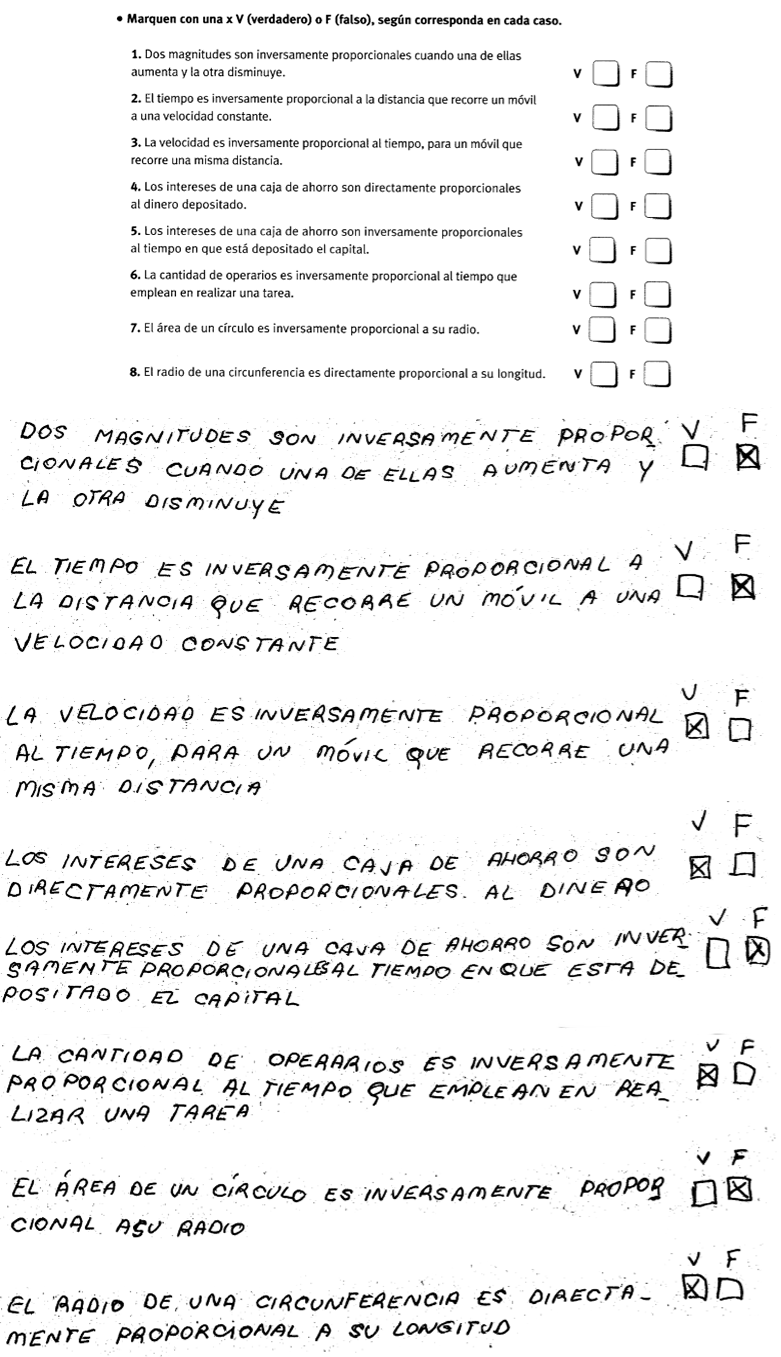 • Marquen con una x V (verdadero) o F (falso), según corresponda en cada caso.
1. Dos magnitudes son inversamente proporcionales cuando una de ellas
aumenta y la otra disminuye. V F
2. El tiempo es inversamente proporcional a la distancia que recorre un móvil
a una velocidad constante. V F
3. La velocidad es inversamente proporcional al tiempo, para un móvil que
recorre una misma distancia. V F
4. Los intereses de una caja de ahorro son directamente proporcionales
al dinero depositado. V F
5. Los intereses de una caja de ahorro son inversamente proporcionales
al tiempo en que está depositado el capital. V F
6. La cantidad de operarios es inversamente proporcional al tiempo que
emplean en realizar una tarea. V F
7. El área de un círculo es inversamente proporcional a su radio. V F
8. El radio de una circunferencia es directamente proporcional a su longitud. V F
DOS MAGNITUDES SON INVERSAMENTE PROPOR_ V F
CIONALES CUANDO UNA DE ELLAS AUMENTA Y
LA OTRA DISMINUYE
EL TIEMPO ES INVERSAMENTE PROPORCIONAL A V F
LA DISTANCIA QUE RECORRE UN MÓVIL A UNA
VELOCIDAD CONSTANTE
LA VELOCIDAD ES INVERSAMENTE PROPORCIONAL V F
AL TIEMPO, PARA UN MÓVIL QUE RECORRE UNA
MISMA DISTANCIA
V F
LOS INTERESES DE UNA CAJA DE AHORRO SON
DIRECTAMENTE PROPORCIONALES AL DINERO
V F
LOS INTERESES DE UNA CAJA DE AHORRO SON INVER_
SAMENTE PROPORCIONALES AL TIEMPO EN QUE ESTA DE_
POSITADO EL CAPITAL
LA CANTIDAD DE OPERARIOS ES INVERSAMENTE V F
PROPORCIONAL AL TIEMPO QUE EMPLEAN EN REA_
LIZAR UNA TAREA
V F
EL ÁREA DE UN CÍRCULO ES INVERSAMENTE PROPOR
CIONAL A SU RADIO
V F
EL RADIO DE UNA CIRCUNFERENCIA ES DIRECTA_
MENTE PROPORCIONAL A SU LONGITUD